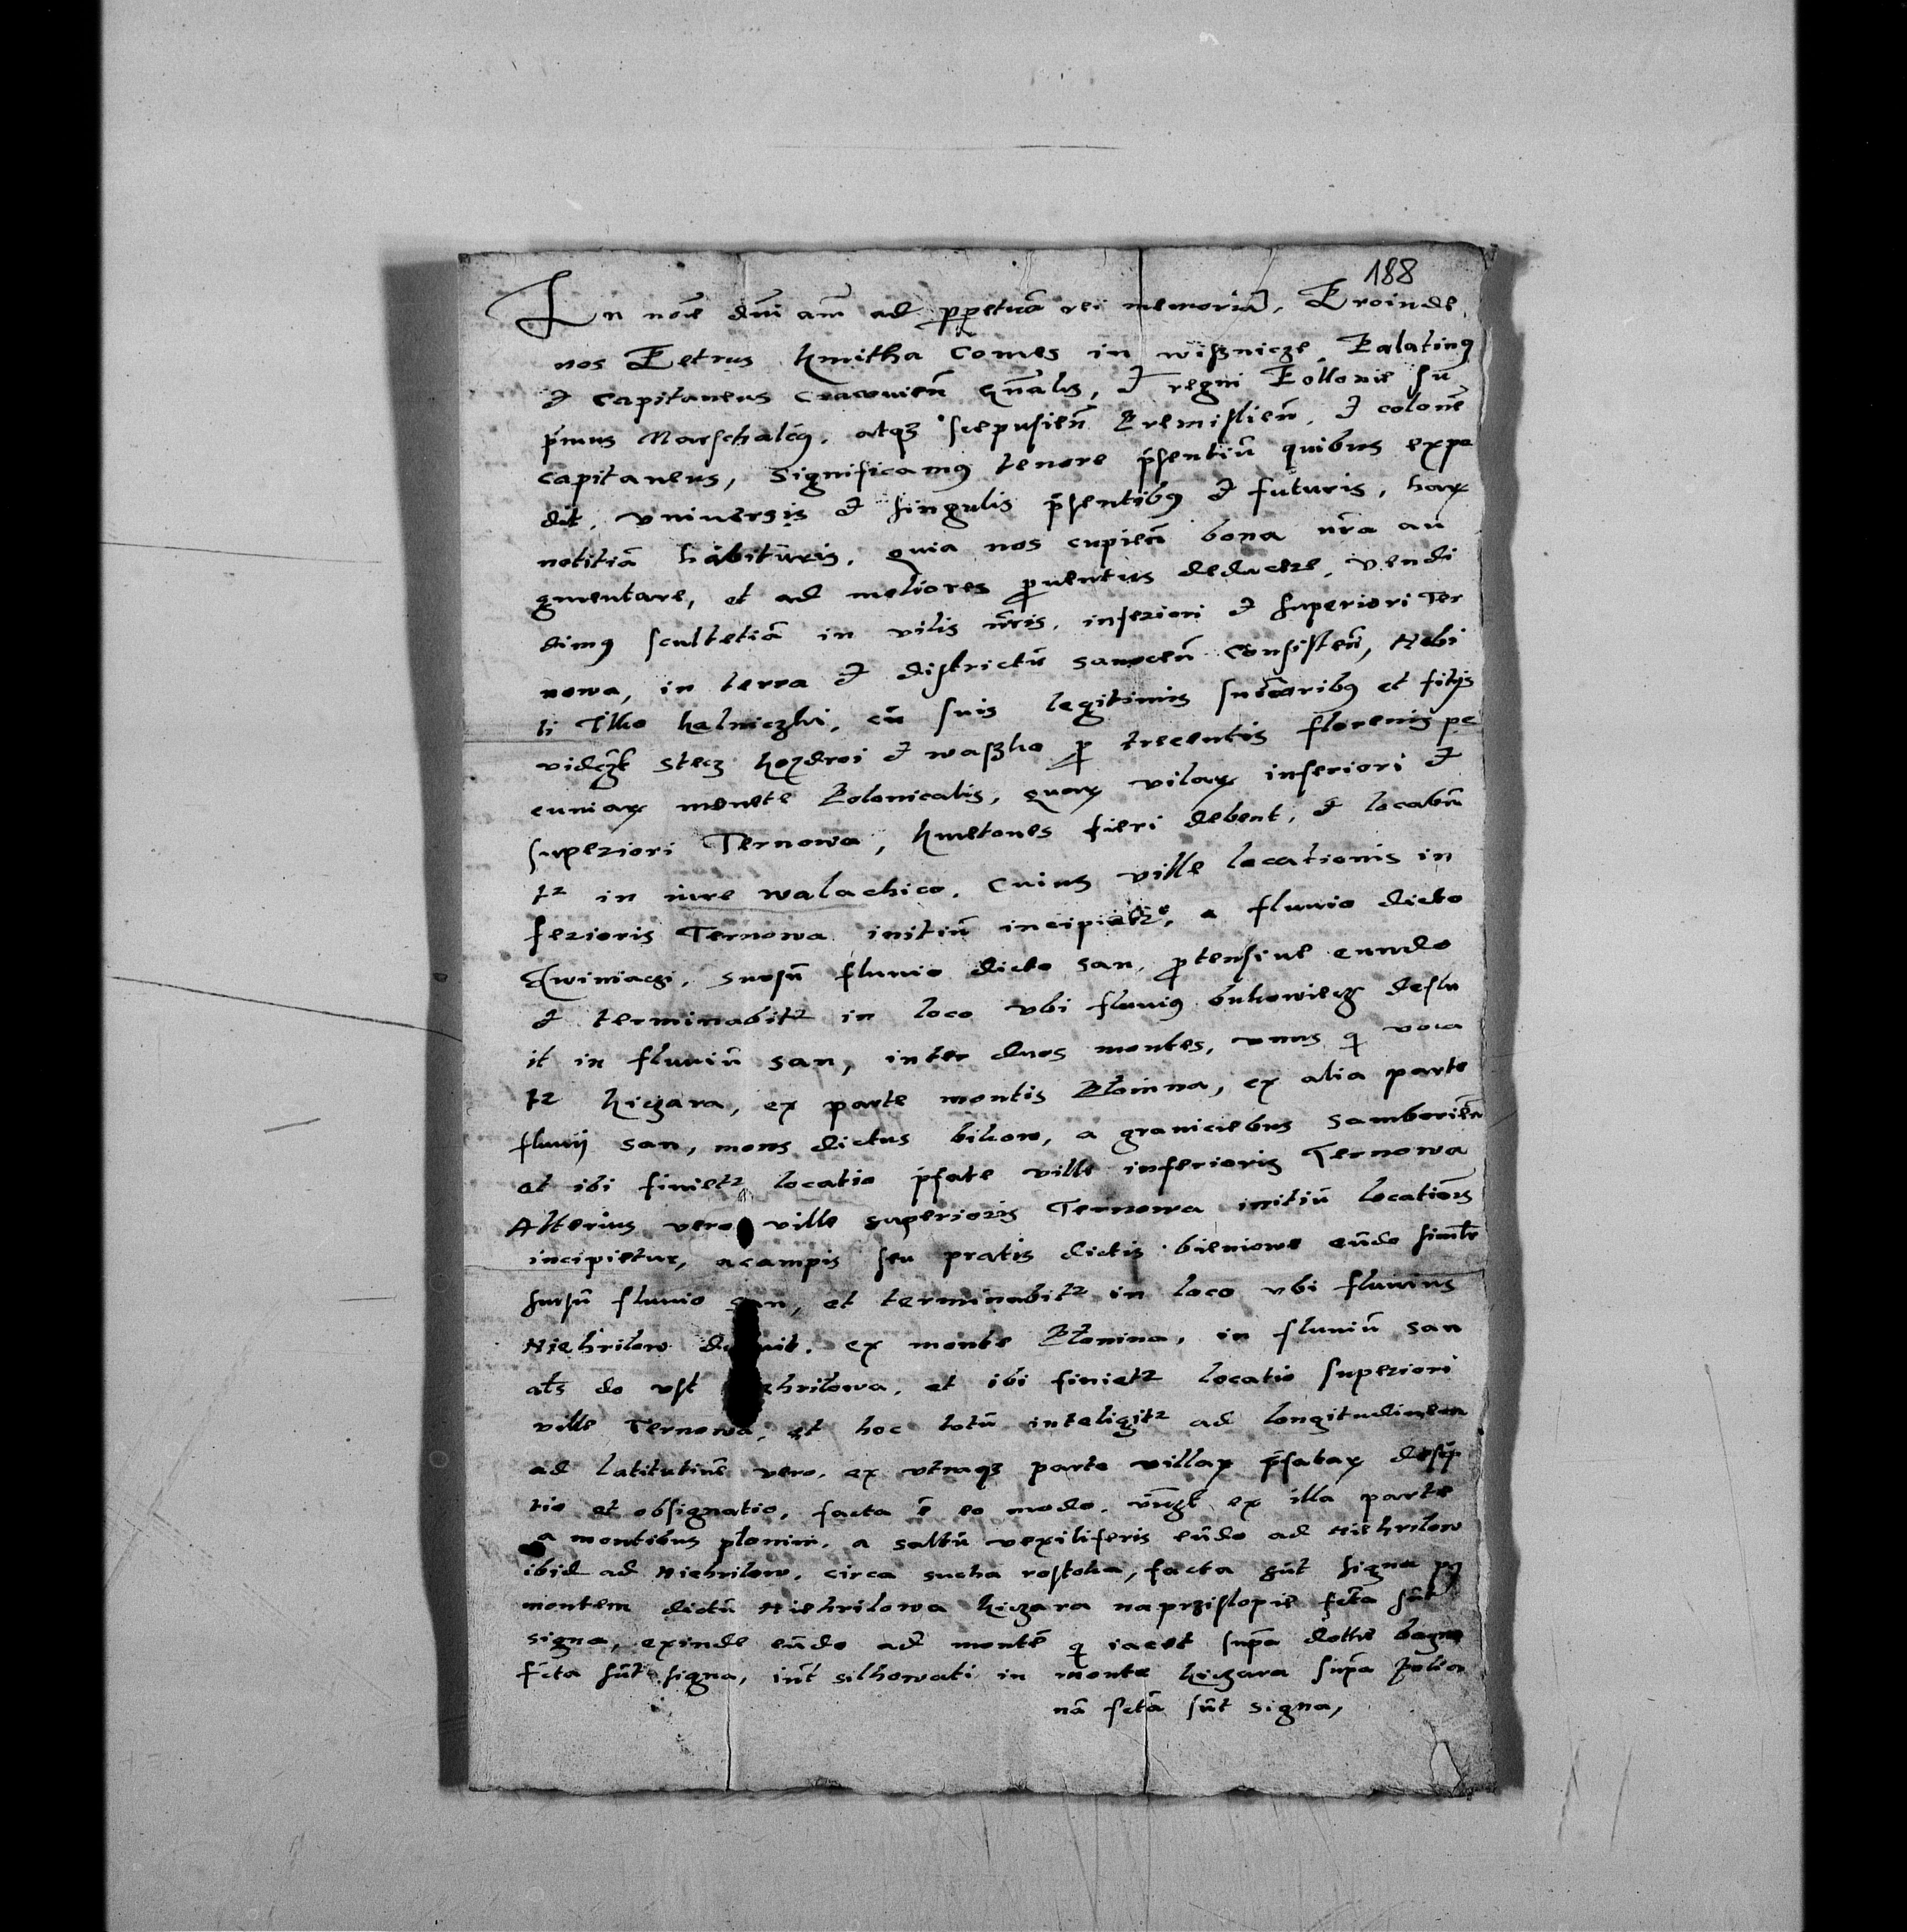 188
In noīe dn̄i am̄ ad ppetuā rei memoriā, Proinde
nos Petrus Kmitha Comes in wißnicze, Palatinꝰ
et Capitaneus Cracouien̄ gn̄alis, et regni Pollonie su
pmus Marschalcꝰ, atqꝫ scepusien̄ Premislien̄, et colonē
capitaneus, Significamꝰ tenore pn̄sentiū quibus expe
dit, vniuersis et singulis pn̄sentibꝰ et futuris, haꝝ
notitiā habituris, quia nos cupien̄ bona nr̄a au
gmentare, et ad meliores prouentus deducere, vendi
dimꝰ scultetiā in vilis nr̄is, inferiori et superiori Ter
nowa, in terra et districtū sanocen̄ Consisten̄, Nobi
li Ilko kalniczki, cū suis legitimis succ̄oribꝰ et filijs
videlꝫ stecz kozdroi et waßko p trecentis florenis pe
cuniaꝝ monete Polonicalis, quaꝝ vilaꝝ inferiori et
superiori Ternowa, kmetones fieri debent, et locabū
tr in iure walachico, Cuius ville locationis in
ferioris Ternowa initiū incipietr, a fluuio dicto
Hwiniaczi, sursū fluuio dicto san, protensiue eundo
et terminabitr in loco vbi fluuiꝰ bukowiecz deflu
it in fluuiū san, inter duos montes, vnus q voca
tr kiczara, ex parte montis Plonina, ex alia parte
fluuij san, mons dictus bikow, a graniciebus samborien̄
et ibi finietr locatio pn̄fate ville inferioris Ternowa
Alterius vero ville superioris Ternowa initiū locationis
incipietur, a campis seu pratis dictis bieniowe eūdo simlr
sursū fluuio san, et terminabitr in loco vbi fluuius
Niehrilow ex monte Plonina, in fluuiū san
als do vst et ibi finietr locatio superiori
ville Ternowa, et hoc totū inteligitr ad longitudinem
ad latitutinē vero, ex vtraqꝫ parte villaꝝ pn̄fataꝝ
tio et obsignatio, facta ē eo modo, ex illa parte
a montibus plonin, a saltū vexiliferis eūdo ad Niehrilow
ibid ad Niehrilow, circa sucha rostoka, facta sūt signa
montem dictū Niehrilowa kiczara naprzislopie fcta sūt
signa, exinde eūdo ad montē q iacet supra dothe bagno
fcta sūt signa, int silkowati in monte kiczara supra polia
nā fcta sūt signa,